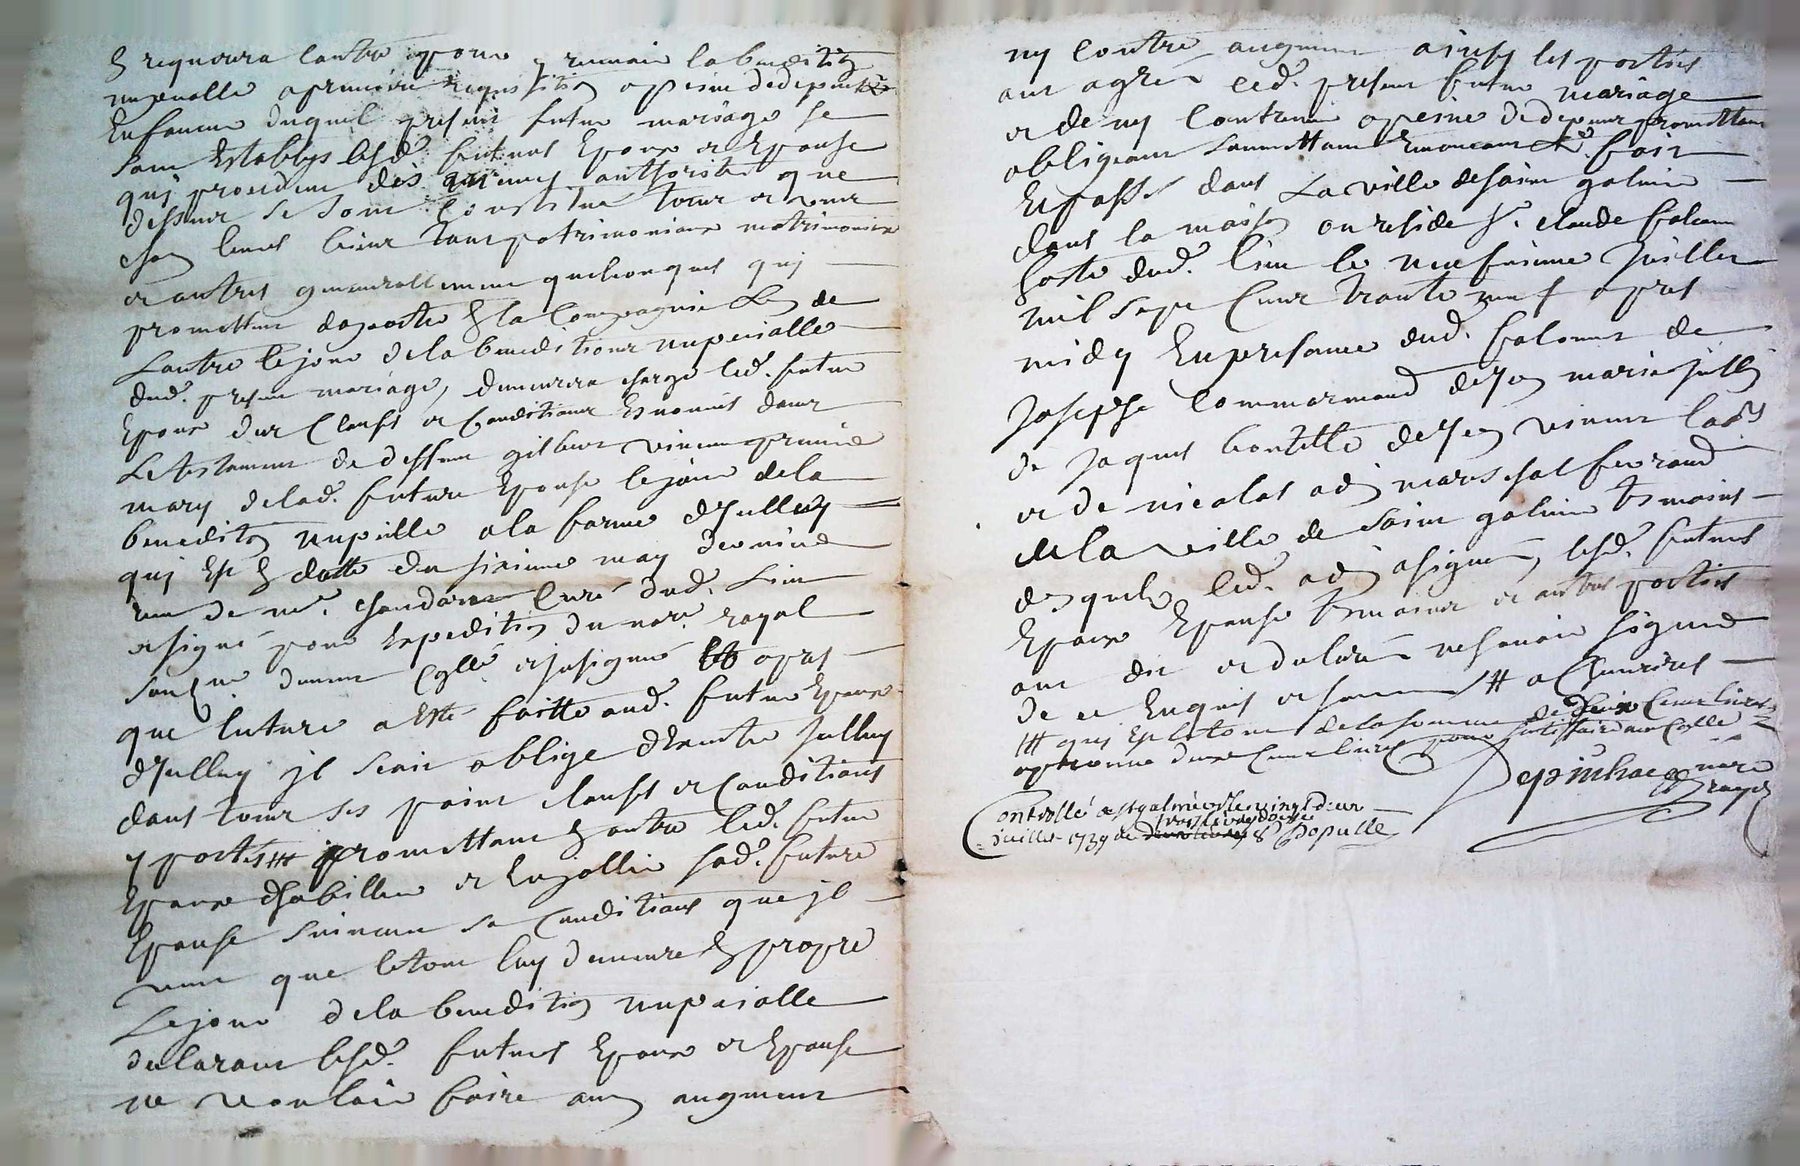 & requerra lautre pour y recevoir la benediction
nupcialle a premiere requisition a peine de depents
En faveur duquel present futur mariage se
sont Establys lesd. futurs Epoux et Epouse
qui procedent des mesmes authorités que
dessus se sont constitué tous et un
chun leurs biens tant patrimoniaux matrimoniaux
et autres generallement quelconques qui
promettent daporter & la Compagnie Lun de
Lautre le jour de la benediction nupcialle
dud. present mariage, demeurera chargé led. futur
Epoux des Clauses et Conditions Enoncés dans
Le testament de deffunt gilbert vincent premier
mary de lad. future Epouse le jour de la
benediction nupcille a la forme dIculluy
qui Est & datte du sixieme may dernier
receu de mr. Curé dud. Lieu
et signé pour Expedition du nore. royal
donné Coppie et soussigné apres
que lecture a Esté faitte aud. futur Epoux
dIculluy jl seroit obligé dExecuter Jculluy
dans tous ses points clauses et Conditions
y portés promettant & outre led. futur
Epoux dhabiller et Enjoller sad. future
Epouse suivant sa Condition que jl
veut que le tout luy demeure & propre
Le jour de la benediction nupcialle
declarant lesd. futurs Epoux et Epouse
ne vouloir faire aucun augment
ny contre augment ainsy les parties
ont agréé led. present futur mariage
et de ny Contrevenir a peine de depents promettant
obligeant soumettant Renonceant &c. fait
Et passé dans La ville de saint galmier
dans la maison ou reside Sr. claude falcon
hoste dud. lieu le neufvieme Juillet
mil sept Cent trante neuf apres
midy En presence dud. falconet de
Joseph Commarmond de St marie
de Jaques boutelle de St vincent
et de nicolas adin mareschal ferrand
de la ville de saint galmier temoins
desquels led. adin a signé, lesd. futurs
Epoux Epouse temoins et autres parties
ont dit et declaré ne scavoir signer
de ce Enquis et sommés # a Chevrieres
# qui Est le tout de la somme de deux Cent livres
Depinhac nore royal
Controllé a St galmier le vingt deux
juillet 1739 &c Populle